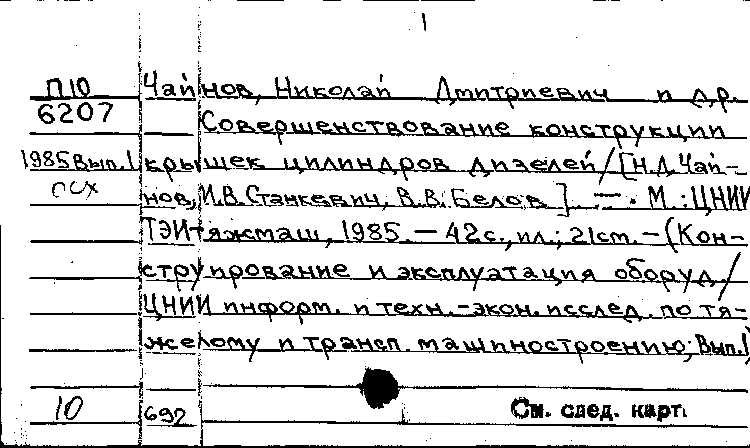 1
П10 Чайнов, Николай Дмитриевич и др.
6207 Совершенствование конструкции
1985 Вып.1 крышек цилиндров дизелей/[Н.Д.Чай-
нов, И.В.Станкевич, В.В.Белов]. — М.: ЦНИИ
ТЭИтяжмаш, 1985. — 42с., ил.; 21см. — (Кон-
струирование и эксплуатация оборуд./
ЦНИИ информ. и техн.-экон. исслед. по тя-
желому и трансп. машиностроению; Вып.1)
10 692 См. след. карт.